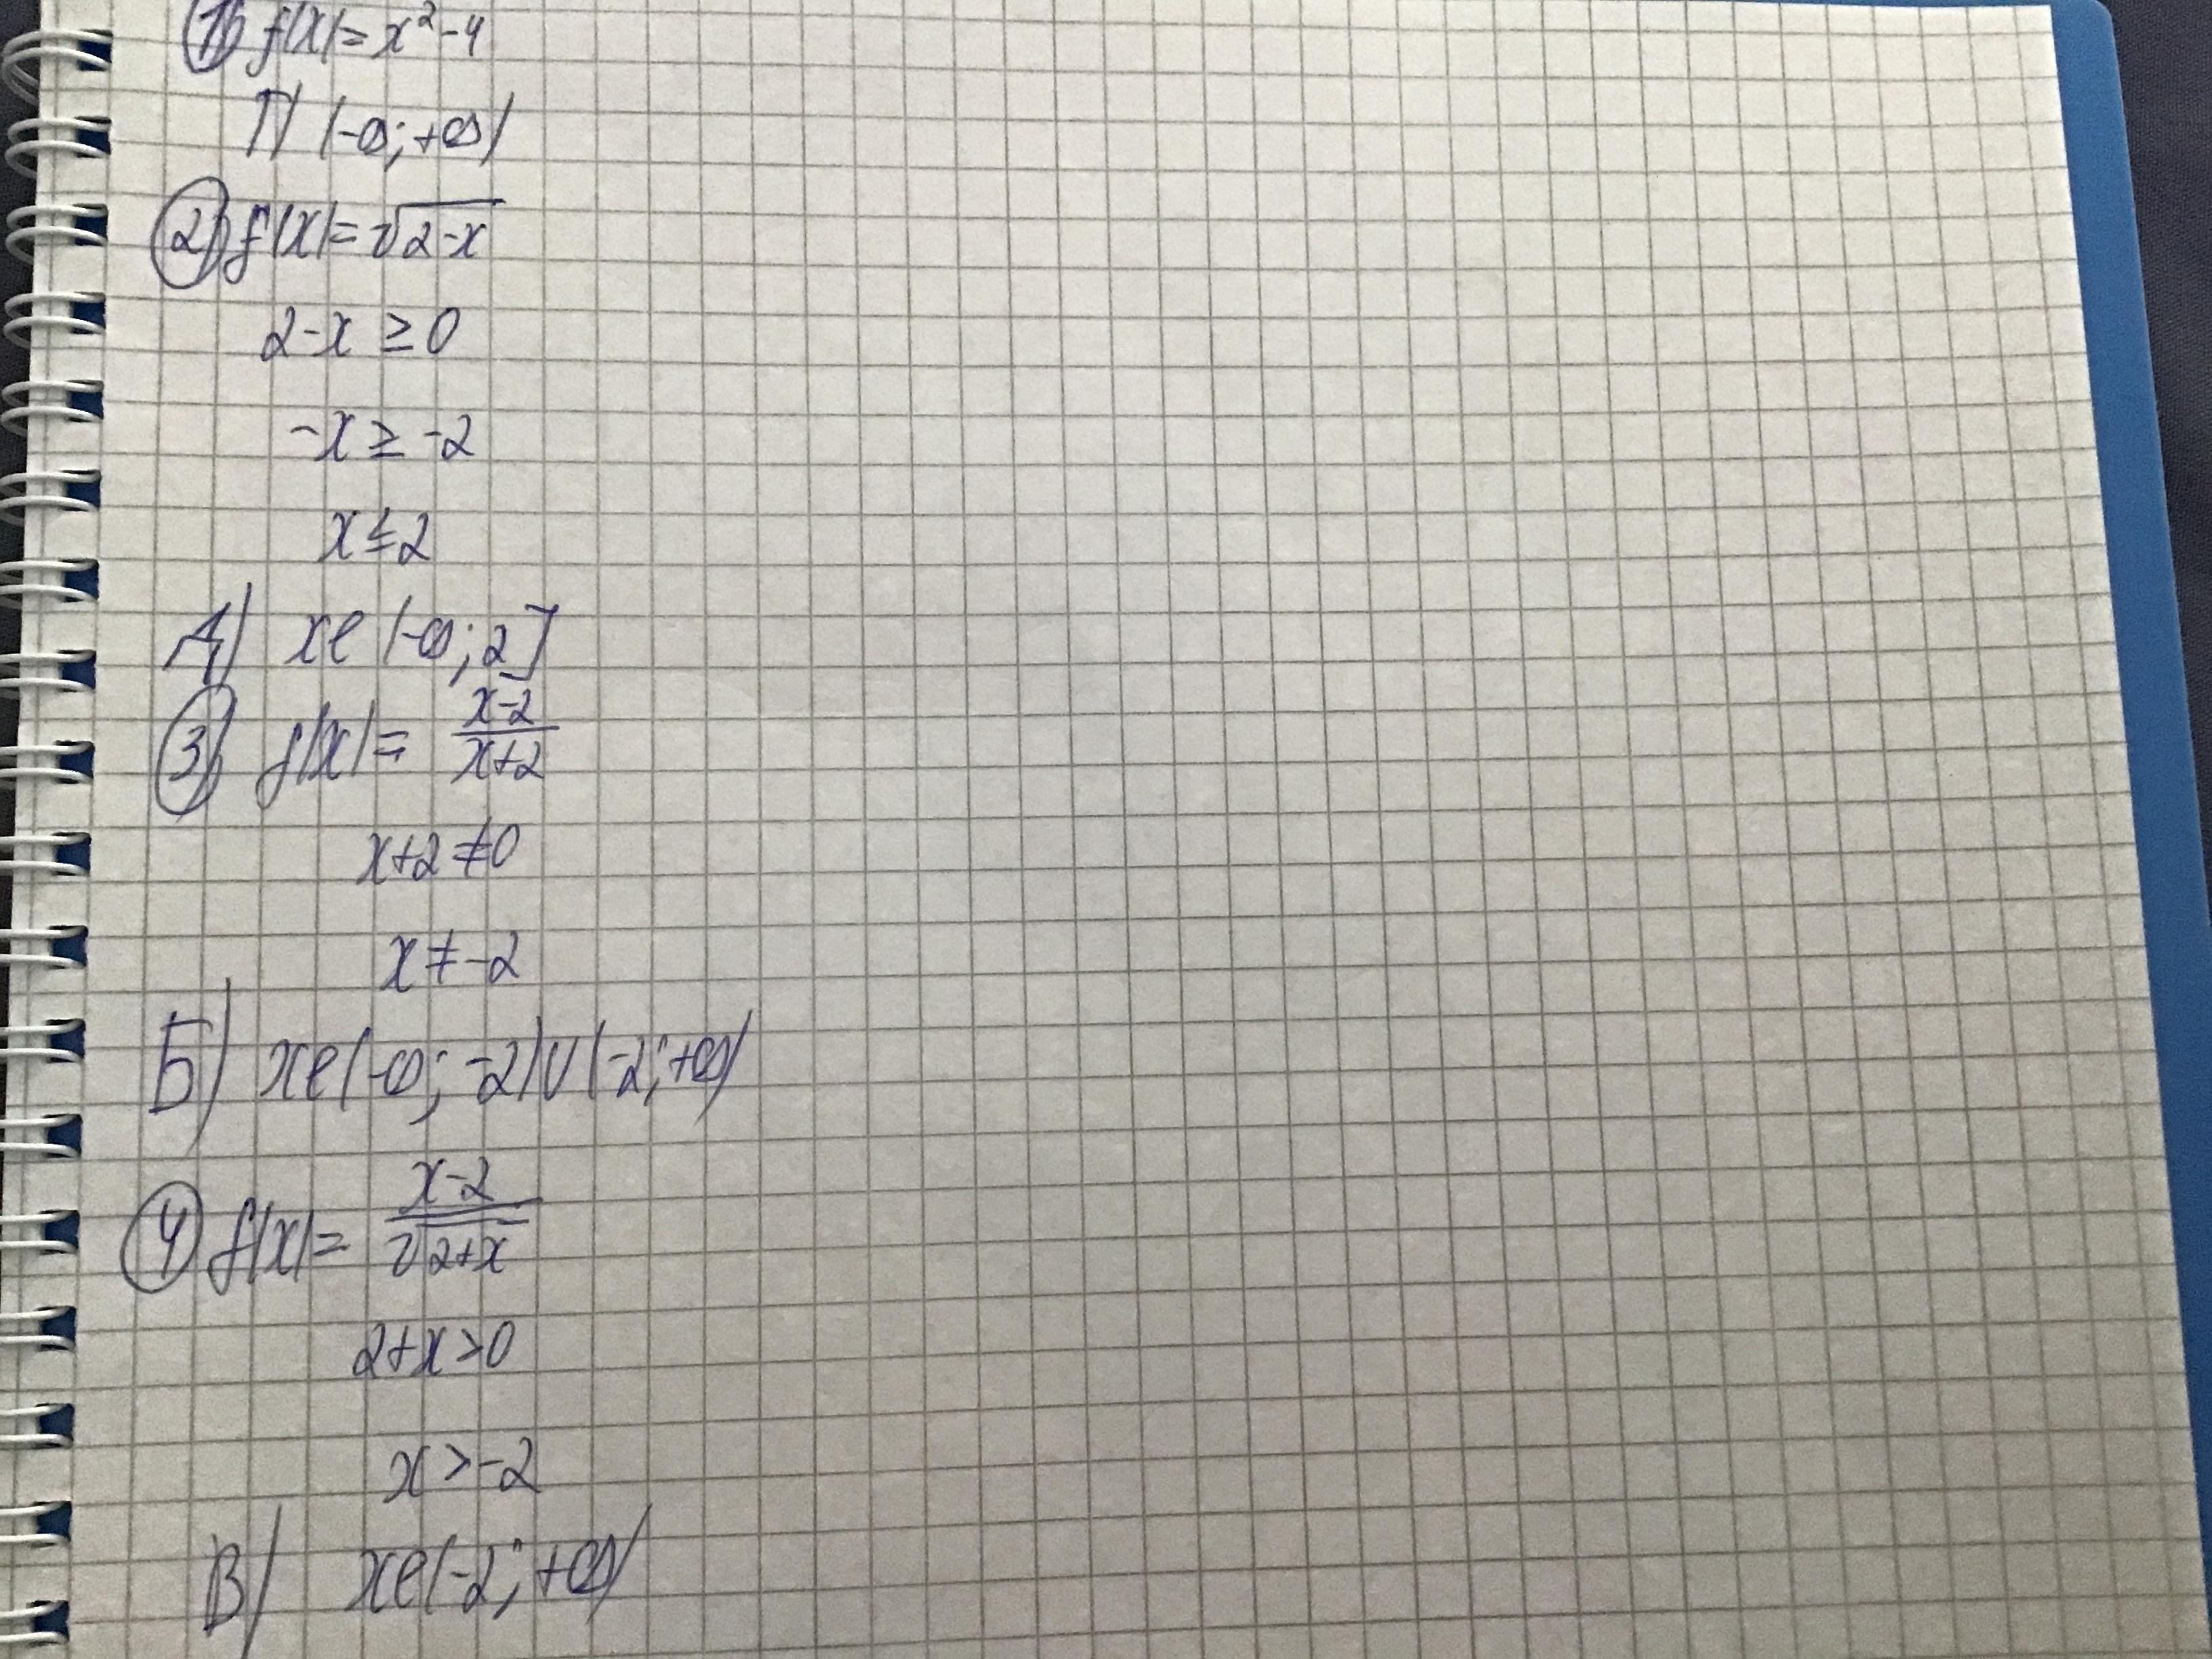 1) f(x)=x²-4
Г) (-∞;+∞)
2) f(x)=√2-x
2-x ≥0
-x ≥ -2
x≤2
А) x∈(-∞;2]
3) f(x)= x-2/x+2
x+2≠0
x≠-2
Б) x∈(-∞; -2)∪(-2;+∞)
4) f(x)= x-2/√2+x
2+x>0
x>-2
В) x∈(-2;+∞)